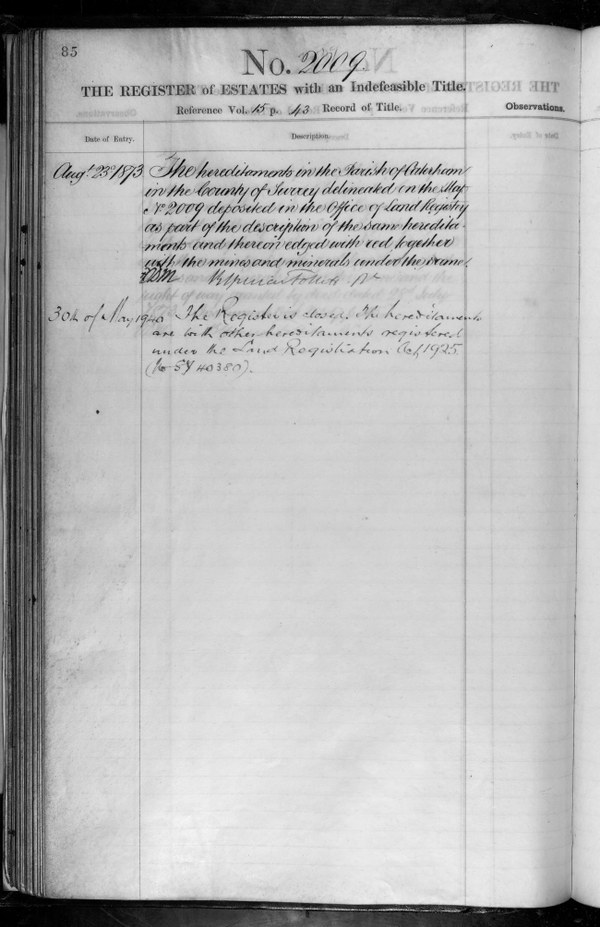 85
No. 2009
THE REGISTER of ESTATES with an Indefeasible Title.
Reference Vol. 15 p. 43 Record of Title.
Observations.
Date of Entry.
Description.
Augt. 23d 1873
The hereditaments in the Parish of Caterham
in the County of Surrey delineated on the Map
No 2009 deposited in the Office of Land Registry
as part of the description of the same heredita-
ments and thereon edged with red together
with the mines and minerals under the same.
Follett
30th of May
The Register is closed. The hereditaments
are with other hereditaments registered
under the Land Registration Act, 1925.
(No SY 40380).